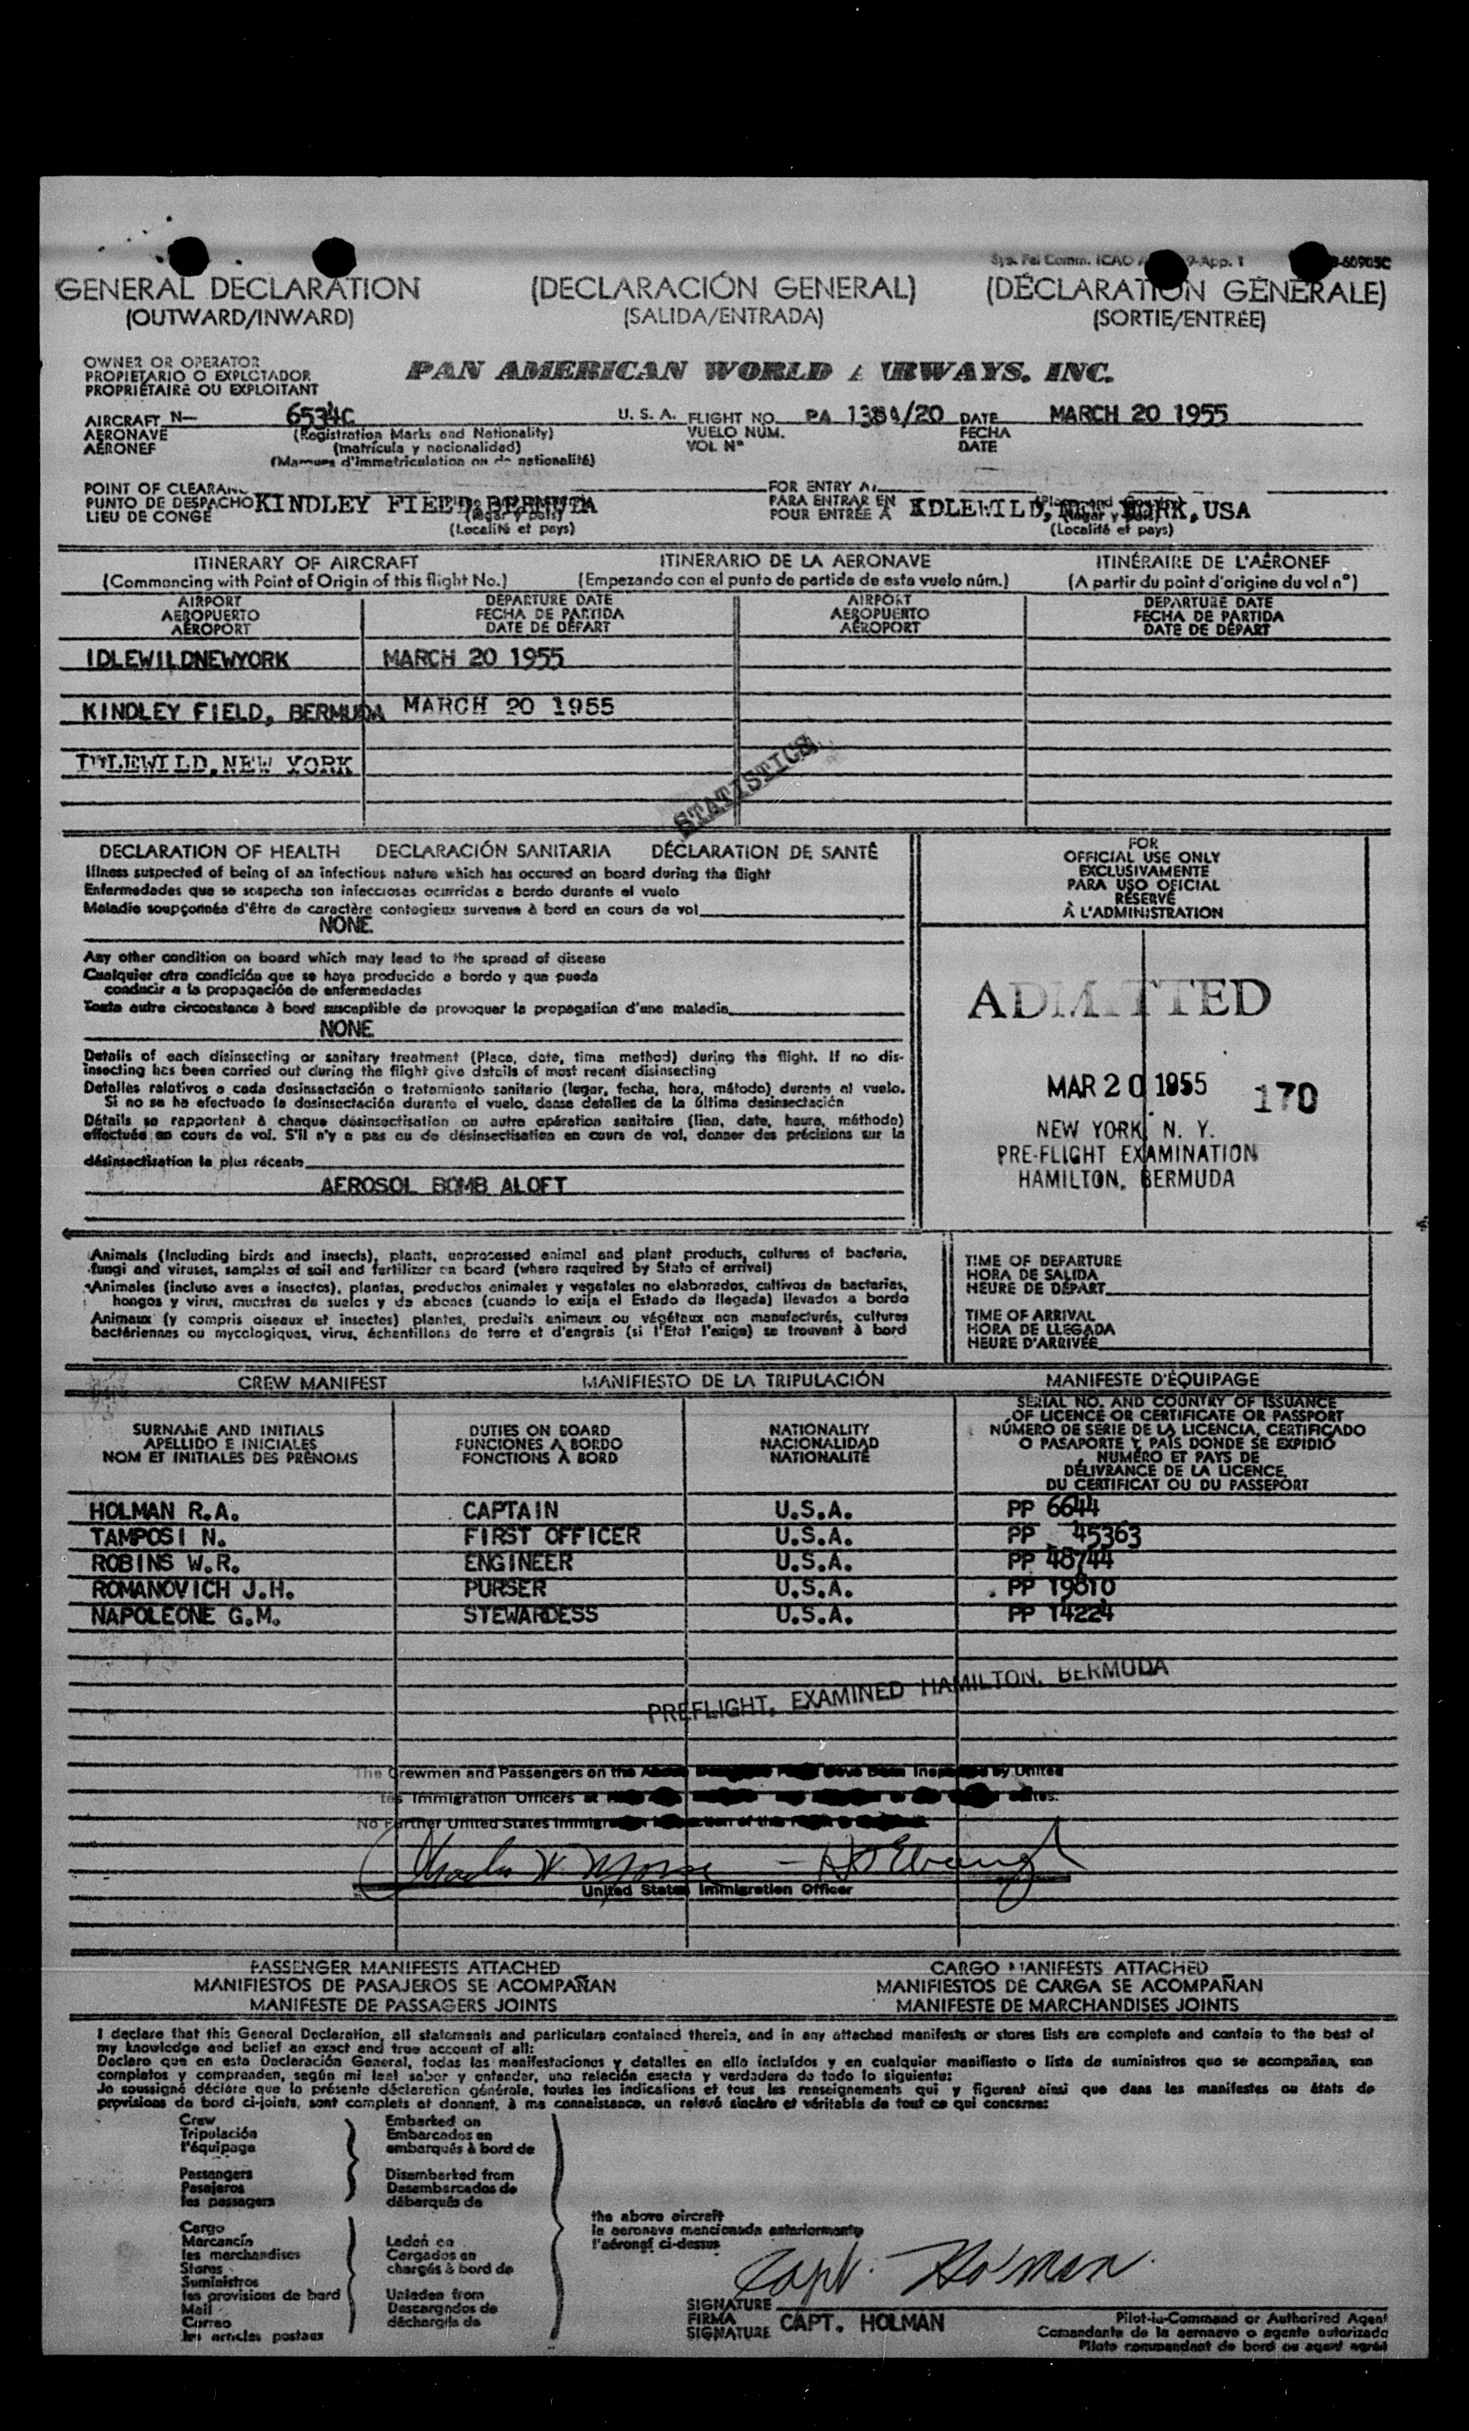 GENERAL DECLARATION (DECLARACIÓN GENERAL) (DÉCLARATION GÉNÉRALE)
(OUTWARD/INWARD) (SALIDA/ENTRADA) (SORTIE/ENTRÉE)
OWNER OR OPERATOR
PROPIETARIO O EXPLOTADOR
PROPRIÉTAIRE OU EXPLOITANT
PAN AMERICAN WORLD AIRWAYS, INC.
AIRCRAFT N— 6534C U. S. A. FLIGHT NO. PA DATE MARCH 20 1955
AERONAVE (Registration Marks and Nationality) VUELO NÚM. FECHA
AÉRONEF (matrícula y nacionalidad) VOL N° DATE
(Marques d'immatriculation ou de nationalité)
POINT OF CLEARANCE FOR ENTRY AT
PUNTO DE DESPACHO KINDLEY FIELD, BERMUDA PARA ENTRAR EN IDLEWILD, NEW YORK, USA
LIEU DE CONGÉ POUR ENTRÉE À
(Localité et pays) (Localité et pays)
ITINERARY OF AIRCRAFT ITINERARIO DE LA AERONAVE ITINÉRAIRE DE L'AÉRONEF
(Commencing with Point of Origin of this flight No.) (Empezando con el punto de partida de este vuelo núm.) (A partir du point d'origine du vol n°)
AIRPORT DEPARTURE DATE AIRPORT DEPARTURE DATE
AEROPUERTO FECHA DE PARTIDA AEROPUERTO FECHA DE PARTIDA
AÉROPORT DATE DE DÉPART AÉROPORT DATE DE DÉPART
IDLEWILDNEWYORK MARCH 20 1955
KINDLEY FIELD, BERMUDA MARCH 20 1955
IDLEWILD, NEW YORK
STATISTICS
DECLARATION OF HEALTH DECLARACIÓN SANITARIA DÉCLARATION DE SANTÉ
Illness suspected of being of an infectious nature which has occured on board during the flight
Enfermedades que se sospecha son infecciosas ocurridas a bordo durante el vuelo
Maladie soupçonnée d'être de caractère contagieux survenue à bord en cours de vol
NONE
Any other condition on board which may lead to the spread of disease
Cualquier otra condición que se haya producido a bordo y que pueda
conducir a la propagación de enfermedades
Toute autre circonstance à bord susceptible de provoquer la propagation d'une maladie
NONE
Details of each disinsecting or sanitary treatment (Place, date, time method) during the flight. If no dis-
insecting has been carried out during the flight give details of most recent disinsecting
Detalles relativos a cada desinsectación o tratamiento sanitario (lugar, fecha, hora, método) durante el vuelo.
Si no se ha efectuado la desinsectación durante el vuelo, danse detalles de la última desinsectación
Détails se rapportant à chaque désinsectisation ou autre opération sanitaire (lieu, date, heure, méthode)
effectuée en cours de vol. S'il n'y a pas eu de désinsectisation en cours de vol, donner des précisions sur la
désinsectisation la plus récente
AEROSOL BOMB ALOFT
FOR
OFFICIAL USE ONLY
EXCLUSIVAMENTE
PARA USO OFICIAL
RÉSERVÉ
À L'ADMINISTRATION
ADMITTED
MAR 20 1955 170
NEW YORK, N. Y.
PRE-FLIGHT EXAMINATION
HAMILTON, BERMUDA
Animals (Including birds and insects), plants, unprocessed animal and plant products, cultures of bacteria,
fungi and viruses, samples of soil and fertilizer on board (where required by State of arrival)
Animales (incluso aves e insectos), plantas, productos animales y vegetales no elaborados, cultivos de bacterias,
hongos y virus, muestras de suelos y de abonos (cuando lo exija el Estado de llegada) llevados a bordo
Animaux (y compris oiseaux et insectes) plantes, produits animaux ou végétaux non manufacturés, cultures
bactériennes ou mycologiques, virus, échantillons de terre et d'engrais (si l'Etat l'exige) se trouvant à bord
TIME OF DEPARTURE
HORA DE SALIDA
HEURE DE DÉPART
TIME OF ARRIVAL
HORA DE LLEGADA
HEURE D'ARRIVÉE
CREW MANIFEST MANIFIESTO DE LA TRIPULACIÓN MANIFESTE D'ÉQUIPAGE
SURNAME AND INITIALS
APELLIDO E INICIALES
NOM ET INITIALES DES PRÉNOMS
DUTIES ON BOARD
FUNCIONES A BORDO
FONCTIONS À BORD
NATIONALITY
NACIONALIDAD
NATIONALITÉ
SERIAL NO. AND COUNTRY OF ISSUANCE
OF LICENCE OR CERTIFICATE OR PASSPORT
NÚMERO DE SERIE DE LA LICENCIA, CERTIFICADO
O PASAPORTE Y PAÍS DONDE SE EXPIDIÓ
NUMÉRO ET PAYS DE
DÉLIVRANCE DE LA LICENCE,
DU CERTIFICAT OU DU PASSEPORT
HOLMAN R.A. CAPTAIN U.S.A. PP 6644
TAMPOSI N. FIRST OFFICER U.S.A. PP 45363
ROBINS W.R. ENGINEER U.S.A. PP 48744
ROMANOVICH J.H. PURSER U.S.A. PP 19810
NAPOLEONE G.M. STEWARDESS U.S.A. PP 14224
PREFLIGHT, EXAMINED HAMILTON, BERMUDA
The Crewmen and Passengers on the by United
Immigration Officers at
No Further United States
United States Immigration Officer
PASSENGER MANIFESTS ATTACHED CARGO MANIFESTS ATTACHED
MANIFIESTOS DE PASAJEROS SE ACOMPAÑAN MANIFIESTOS DE CARGA SE ACOMPAÑAN
MANIFESTE DE PASSAGERS JOINTS MANIFESTE DE MARCHANDISES JOINTS
I declare that this General Declaration, all statements and particulars contained therein, and in any attached manifests or stores lists are complete and contain to the best of
my knowledge and belief an exact and true account of all:
Declaro que en esta Declaración General, todas las manifestaciones y detalles en ella incluídos y en cualquier manifiesto o lista de suministros que se acompañan, son
completos y comprenden, según mi leal saber y entender, una relación exacta y verdadera de todo lo siguiente:
Je soussigné déclare que la présente déclaration générale, toutes les indications et tous les renseignements qui y figurent ainsi que dans les manifestes ou états de
provisions de bord ci-joints, sont complets et donnent, à ma connaissance, un relevé sincère et véritable de tout ce qui concerne:
Crew Embarked on
Tripulación Embarcados en
l'équipage embarqués à bord de
Passengers Disembarked from
Pasajeros Desembarcados de
les passagers débarqués de
Cargo
Mercancía Laden on
les marchandises Cargados en
Stores chargés à bord de
Suministros
les provisions de bord Unladen from
Mail Descargados de
Correo déchargés de
les articles postaux
the above aircraft
la aeronave mencionada anteriormente
l'aéronef ci-dessus
Capt. Holman
SIGNATURE
FIRMA CAPT. HOLMAN
SIGNATURE
Pilot-in-Command or Authorized Agent
Comandante de la aeronave o agente autorizado
Pilote commandant de bord ou agent agréé